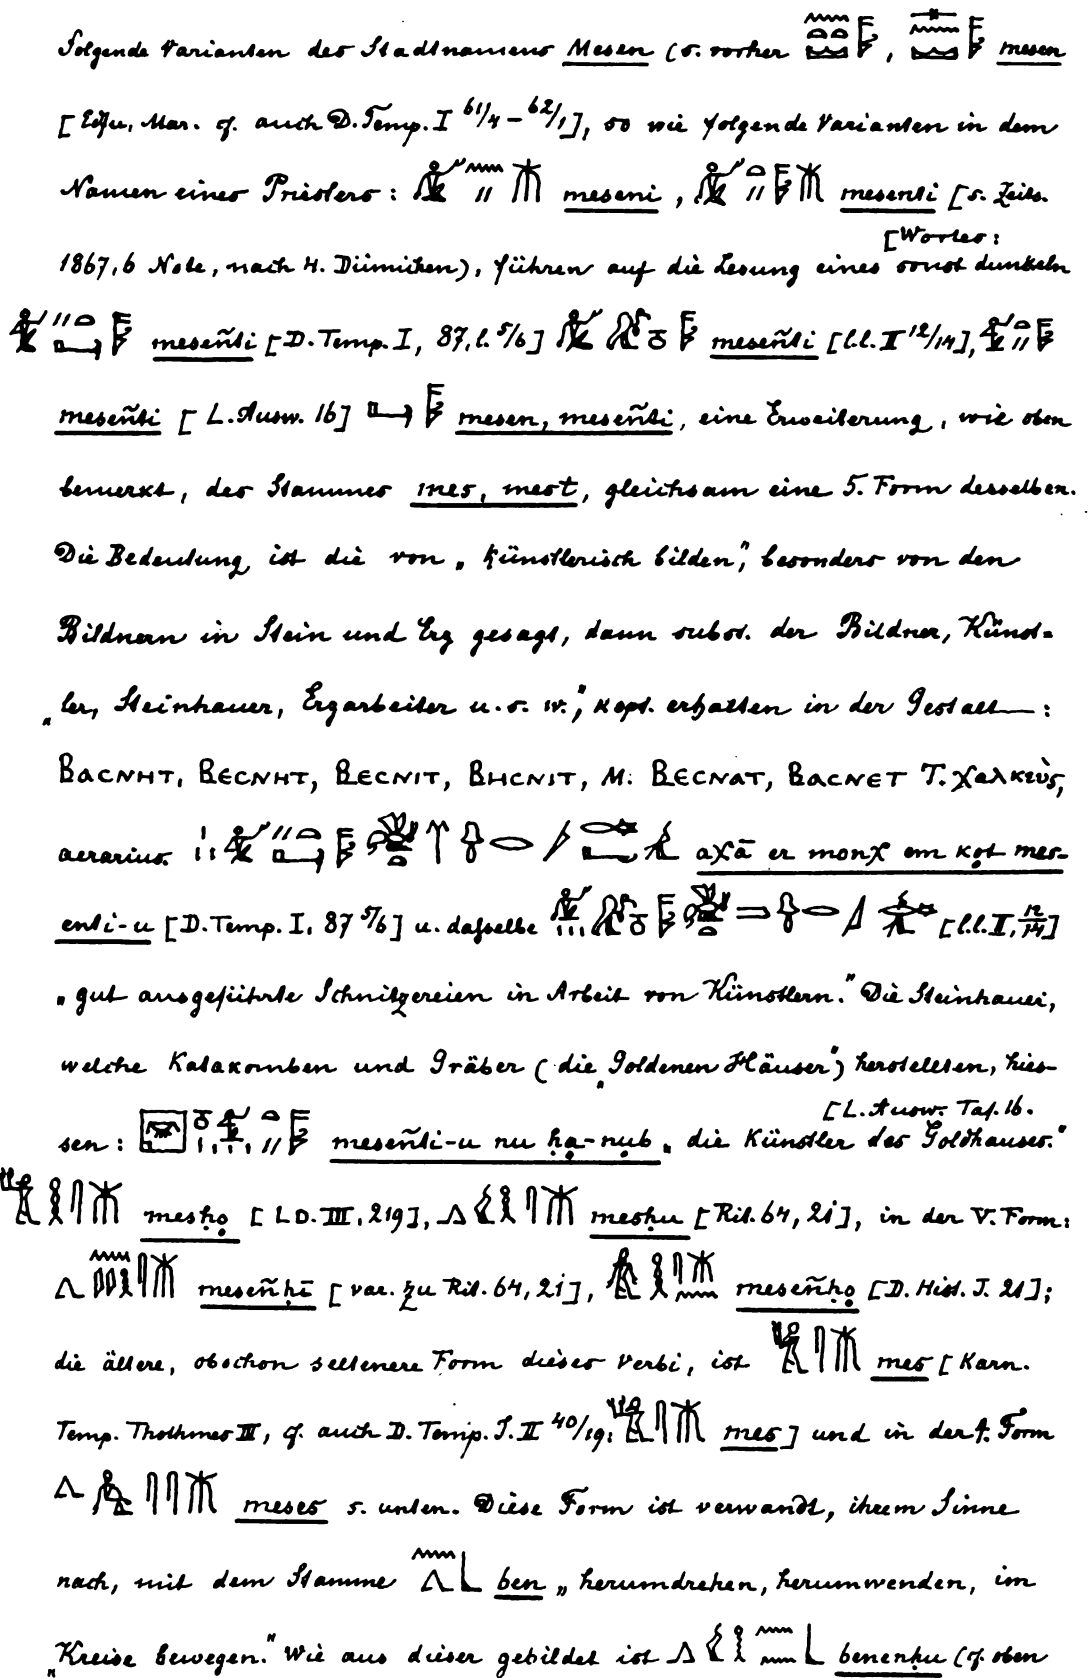 folgende Varianten des Stadtnamens Mesen (s. vorher , mesen
[Edfu, Mar. cf. auch D. Temp. I 61/4 – 62/1], so wie folgende Varianten in dem
Namen eines Priesters: meseni, mesenti [s. Zeits.
1867, 6 Note, nach H. Dümichen), führen auf die Lesung eines sonst dunkeln
[Wortes:
meseñti [D. Temp. I, 87, l. 5/6] meseñti [l.l. II 12/14],
meseñti [L. Ausw. 16] mesen, meseñti, eine Erweiterung, wie oben
bemerkt, des Stammes mes, mest, gleichsam eine 5. Form desselben.
Die Bedeutung ist die von „künstlerisch bilden", besonders von den
Bildnern in Stein und Erz gesagt, dann subst. der Bildner, Künst-
„ler, Steinhauer, Erzarbeiter u. s. w.", kopt. erhalten in der Gestalt —:
ⲂⲀⲤⲚⲎⲦ, ⲂⲈⲤⲚⲎⲦ, ⲂⲈⲤⲚⲒⲦ, ⲂⲎⲤⲚⲒⲦ, M. ⲂⲈⲤⲚⲀⲦ, ⲂⲀⲤⲚⲈⲦ T. χαλκεὺς,
aerarius. aχā er monχ em ḳot mes-
enti-u [D. Temp. I, 87 5/6] u. dasselbe [l.l. II, 12/14]
„gut ausgeführte Schnitzereien in Arbeit von Künstlern." Die Steinhauer,
welche Katakomben und Gräber (die „Goldenen Häuser") herstellten, hies-
sen: meseñti-u nu ḥa-nub „die Künstler des Goldhauses."
[L. Ausw. Taf. 16.
mesḥo [LD. III, 219], mesḥu [Rit. 64, 21], in der V. Form:
meseñḥī [var. zu Rit. 64, 21], meseñḥo [D. Hist. J. 21];
die ältere, obschon seltenere Form dieses Verbi, ist mes [Karn.
Temp. Thothmes III, cf. auch D. Temp. J. II 40/19: mes] und in der 4. Form
meses s. unten. Diese Form ist verwandt, ihrem Sinne
nach, mit dem Stamme ben „herumdrehen, herumwenden, im
„Kreise bewegen." Wie aus dieser gebildet ist benenḥu (cf. oben